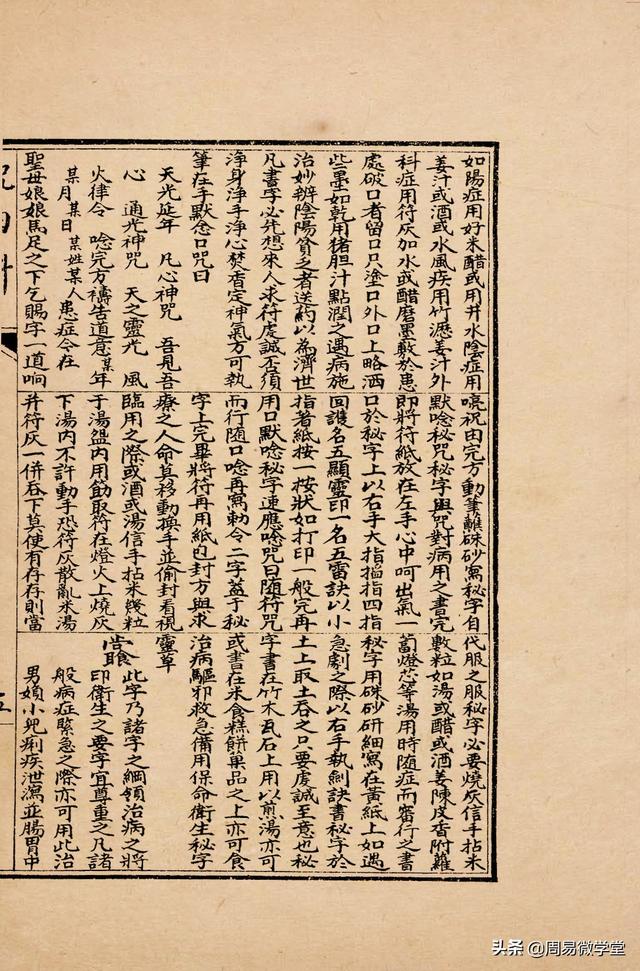 如陽症用好米醋或用井水陰症用
姜汁或酒或水風疾用竹瀝姜汁外
科症用符灰加水或醋磨墨敷於患
處破口者留口只塗口外口上略洒
些墨如乾用猪胆汁點潤之遇病施
治妙辨陰陽貧乏者送药以為濟世
凡書字必先想來人求符虔誠否須
淨身淨手淨心焚香定神氣方可執
筆在手默念口咒曰
天光延年 凡心神咒 吾見吾
心 通光神咒 天之靈光 風
火律令 唸完方禱告道意某年
某月某日某姓某人患症今在
聖母娘娘馬足之下乞賜字一道响
喨祝由完方動筆蘸硃砂寫秘字自
默唸秘咒秘字與咒對病用之書完
即將符紙放在左手心中呵出氣一
口於秘字上以右手大指搯指四指
回護名五顯靈印一名五雷訣以小
指著紙按一按狀如打印一般完再
用口默唸秘字速應唸咒曰随符咒
而行随口唸再寫勅令二字蓋于秘
字上完畢將符再用紙包封方與求
療之人命莫移動換手並偷封看視
臨用之際或酒或湯信手拈米幾粒
于湯盌內用筯取符在燈火上燒灰
下湯內不許動手恐符灰散亂米湯
并符灰一併吞下莫使有存存則當
代服之服秘字必要燒灰信手拈米
數粒如湯或醋或酒姜陳皮香附蘿
蔔燈芯等湯用時随症而審行之書
秘字用硃砂研細寫在黃紙上如遇
急劇之際以右手執劍訣書秘字於
土上取土吞之只要虔誠至意也秘
字書在竹木瓦石上用以煎湯亦可
或書在米食糕餅菓品之上亦可食
治病驅邪救急備用保命衛生秘字
靈草
此字乃諸字之綱領治病之將
印衛生之要字宜尊重之凡諸
般病症緊急之際亦可用此治
男婦小兒痢疾泄瀉並腸胃中
头条 @周易微学堂